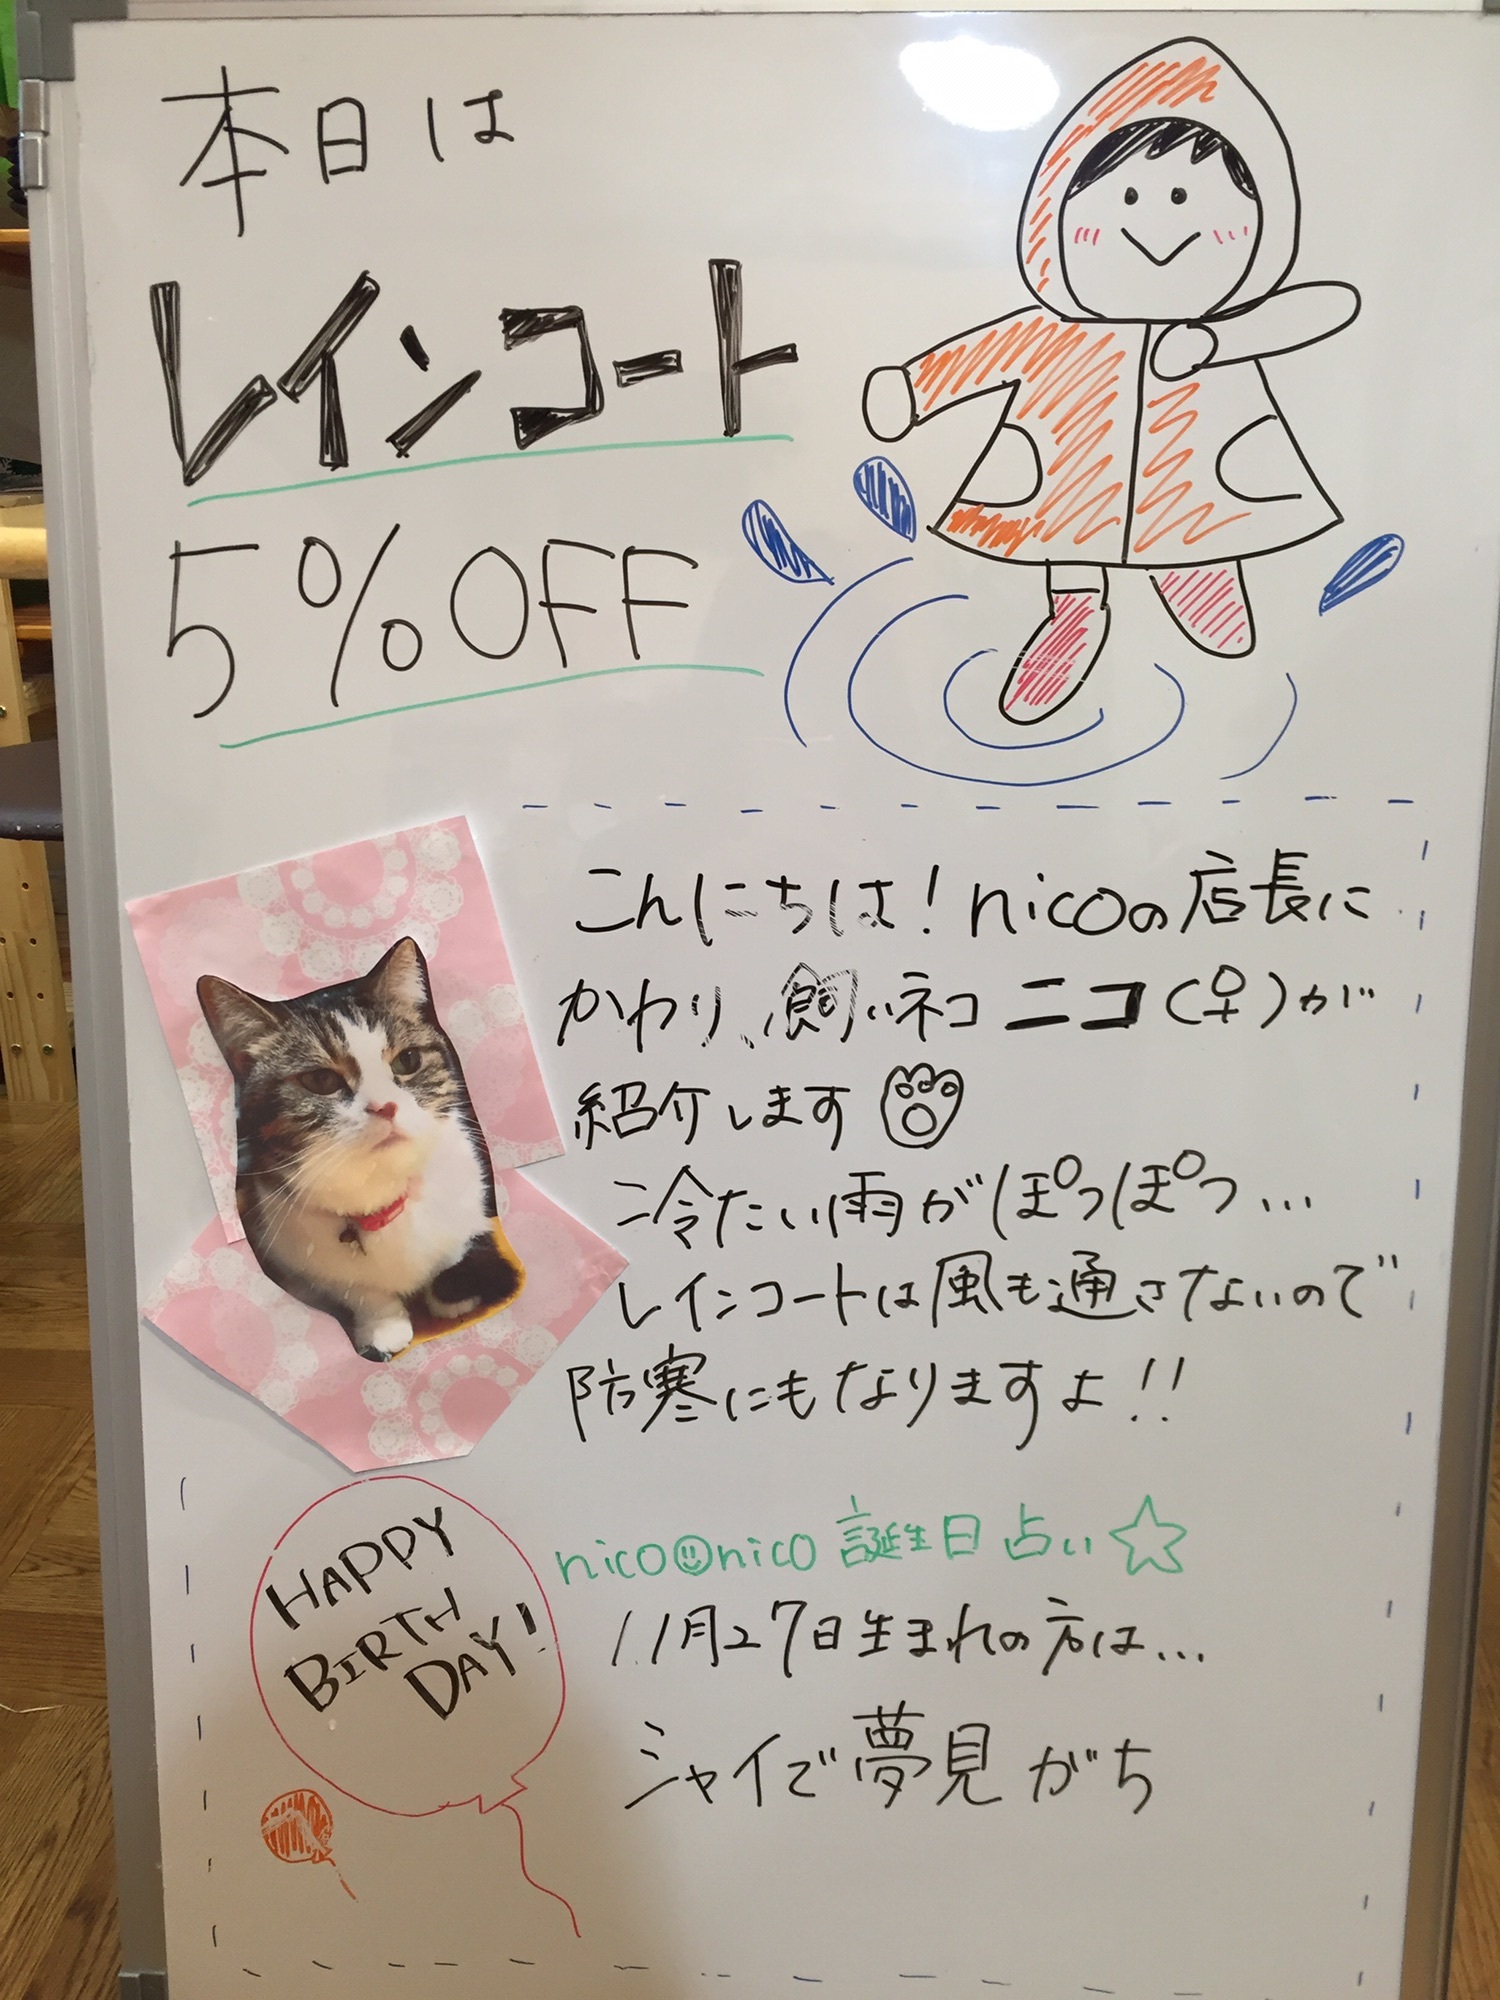 本日は
レインコート
5%OFF
こんにちは！nicoの店長に
かわり、飼いネコ ニコ(♀)が
紹介します
冷たい雨がぽつぽつ…
レインコートは風も通さないので
防寒にもなりますよ!!
HAPPY
BIRTH
DAY!
nico☺nico 誕生日占い☆
11月27日生まれの方は…
シャイで夢見がち